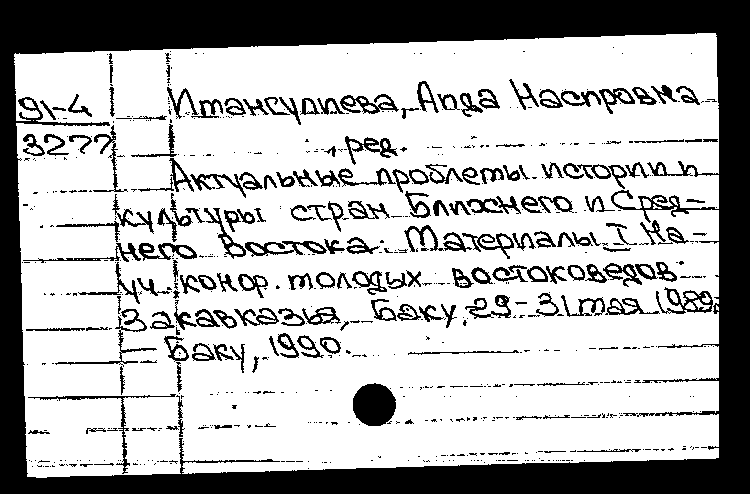 91-4
3277
Имангулиева, Аида Насировна
, ред.
Актуальные проблемы истории и
культуры стран Ближнего и Сред-
него Востока: Материалы I На-
уч. конф. молодых востоковедов
Закавказья, Баку, 29-31 мая 1989.
— Баку, 1990.